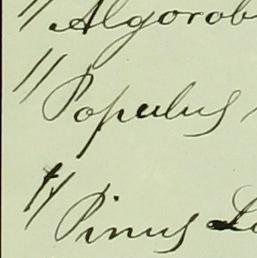 // Algorob
// Populus
// Pinus